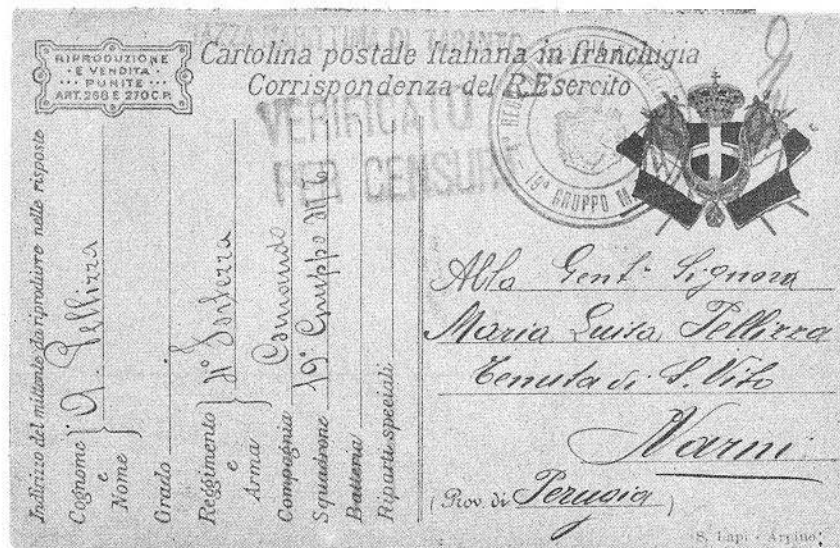 RIPRODUZIONE
E VENDITA
PUNITE
ART. 268 E 270 C.P.
Cartolina postale Italiana in franchigia
Corrispondenza del R. Esercito
VERIFICATO
PER CENSURA
19° GRUPPO
Indirizzo del mittente da riprodurre nelle risposte
Cognome e Nome
Grado
Reggimento e Arma
4° Fortezza
Compagnia Comando
Squadrone 19° Gruppo
Batteria
Riparti speciali
Alla Gent. Signora
Maria Luisa Pellizza
Tenuta di S. Vito
Narni
(Prov. di Perugia)
S. Lapi - Arpino